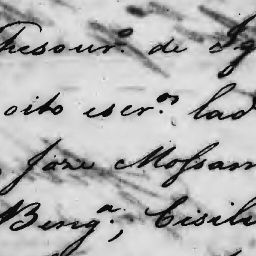 Tresour.º de Ig
oito escr.os lad
faze Mossam
Beng.a, Cisil